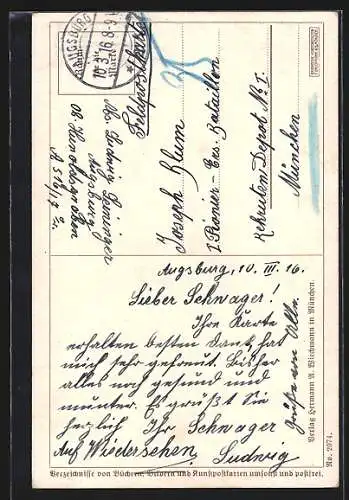 AUGSBURG
10.3.16. 8-9V
Feldpostkarte
Abs. Ludwig
Augsburg
Joseph Blum
I Pionier - Ers. Bataillon
Rekruten Depot No I.
München
Augsburg, 10. III. 16.
Lieber Schwager!
Ihre Karte
erhalten besten Dank, hat
mich sehr gefreut. Bisher
alles noch gesund und
munter. Es grüßt Sie
herzlich Ihr Schwager
Ludwig
Auf Wiedersehen
Grüße an Alle.
Verlag Hermann A. Wiechmann in München.
No. 2974.
Verzeichnisse von Büchern, Bildern und Kunstpostkarten umsonst und postfrei.